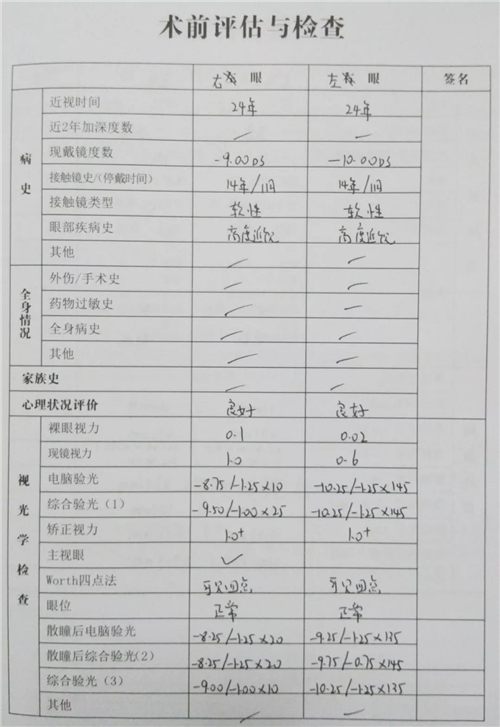 术前评估与检查
右眼 左眼 签名
病史
近视时间 24年 24年
近2年加深度数 / /
现戴镜度数 -9.00DS -10.00DS
接触镜史/(停戴时间) 14年/1月 14年/1月
接触镜类型 软性 软性
眼部疾病史 高度近视 高度近视
其他 / /
全身情况
外伤/手术史 / /
药物过敏史 / /
全身病史 / /
其他 / /
家族史 / /
心理状况评价 良好 良好
视光学检查
裸眼视力 0.1 0.02
现镜视力 1.0 0.6
电脑验光 -8.75/-1.25×10 -10.25/-1.25×145
综合验光(1) -9.50/-1.00×25 -10.25/-1.25×145
矫正视力 1.0+ 1.0+
主视眼 ✓
Worth四点法 可见四点 可见四点
眼位 正常 正常
散瞳后电脑验光 -8.25/-1.25×20 -9.25/-1.25×135
散瞳后综合验光(2) -8.25/-1.25×20 -9.75/-0.75×145
综合验光(3) -9.00/-1.00×10 -10.25/-1.25×135
其他 / /